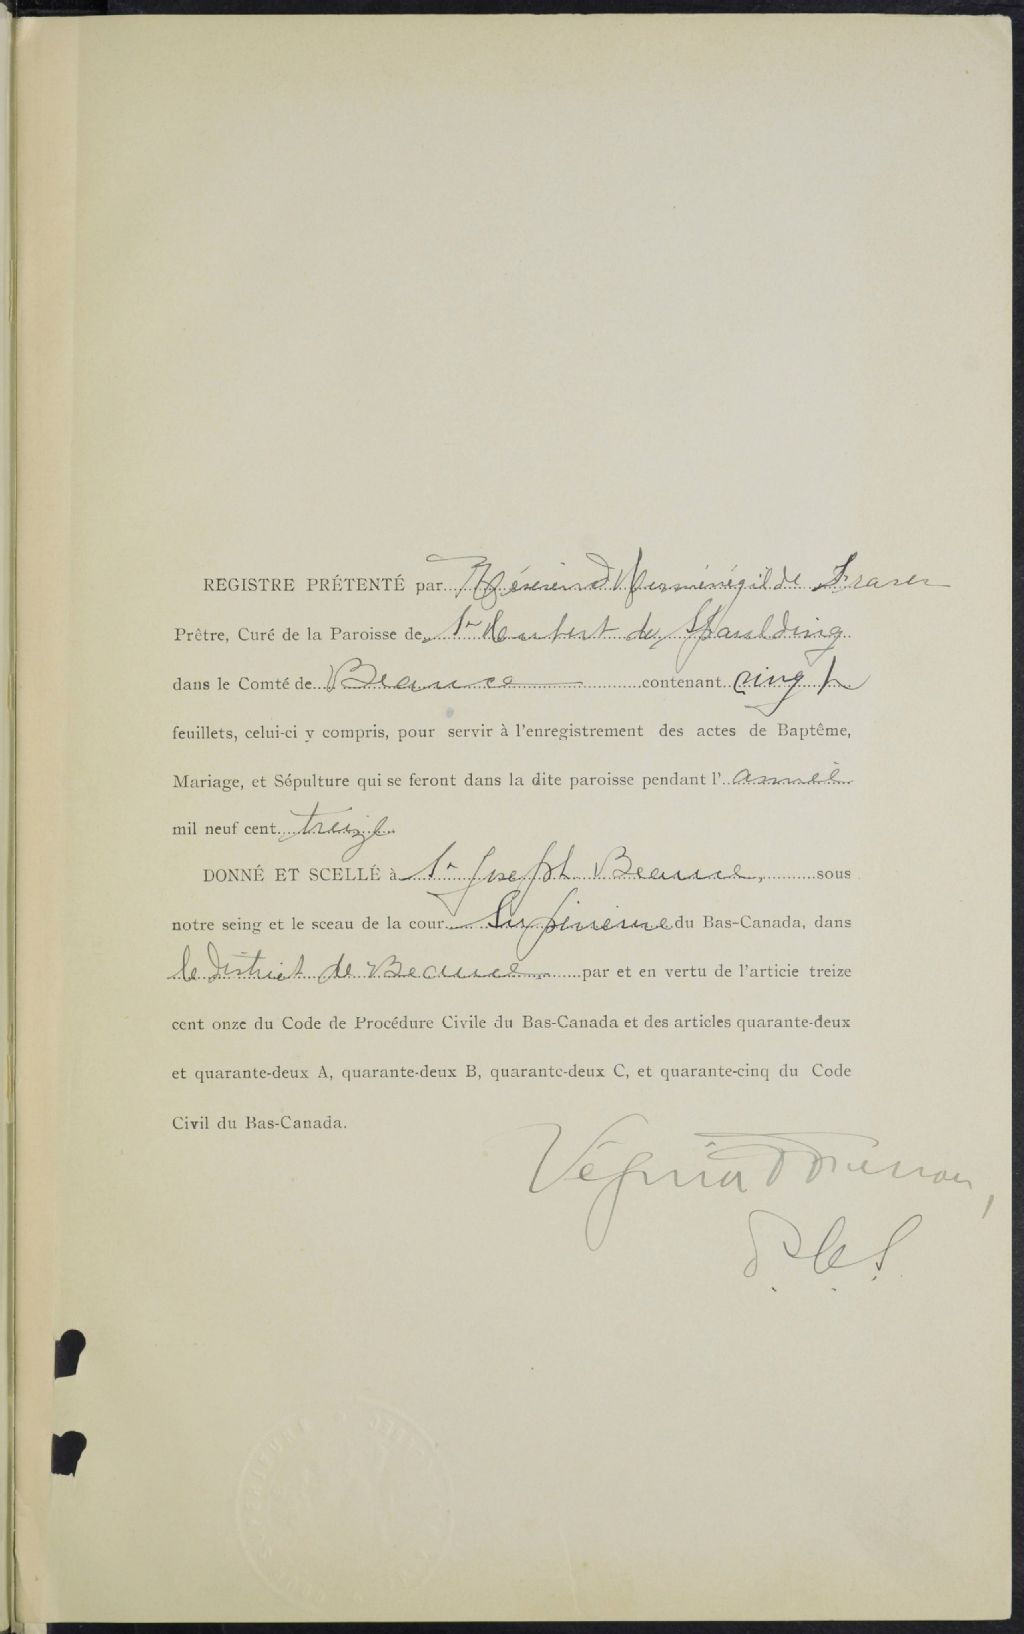 REGISTRE PRÉTENTÉ par Révérend Herménégilde Fraser
Prêtre, Curé de la Paroisse de St Hubert de Spaulding
dans le Comté de Beauce contenant cinq
feuillets, celui-ci y compris, pour servir à l'enregistrement des actes de Baptême,
Mariage, et Sépulture qui se feront dans la dite paroisse pendant l' année
mil neuf cent treize
DONNÉ ET SCELLÉ à St Joseph Beauce, sous
notre seing et le sceau de la cour Supérieure du Bas-Canada, dans
le District de Beauce par et en vertu de l'articie treize
cent onze du Code de Procédure Civile du Bas-Canada et des articles quarante-deux
et quarante-deux A, quarante-deux B, quarante-deux C, et quarante-cinq du Code
Civil du Bas-Canada.
Vézina
P.C.S.